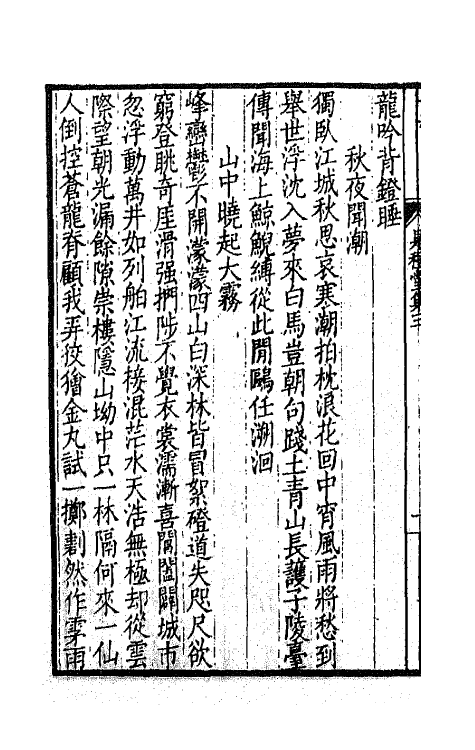 龍吟背鐙睡
秋夜聞潮
獨臥江城秋思哀寒潮拍枕浪花回中宵風雨將愁到
舉世浮沈入夢來白馬豈朝句踐土青山長護子陵臺
傳聞海上鯨鯢縛從此閒鷗任溯洄
山中曉起大霧
峰巒鬱不開濛濛四山白深林皆冒絮磴道失咫尺欲
窮登眺奇厓滑强捫陟不覺衣裳濡漸喜閶闔闢城市
忽浮動萬井如列舶江流接混茫水天浩無極却從雲
際望朝光漏餘隙崇樓隱山坳中只一林隔何來一仙
人倒控蒼龍脊顧我弄狡獪金丸試一擲劃然作雩雨